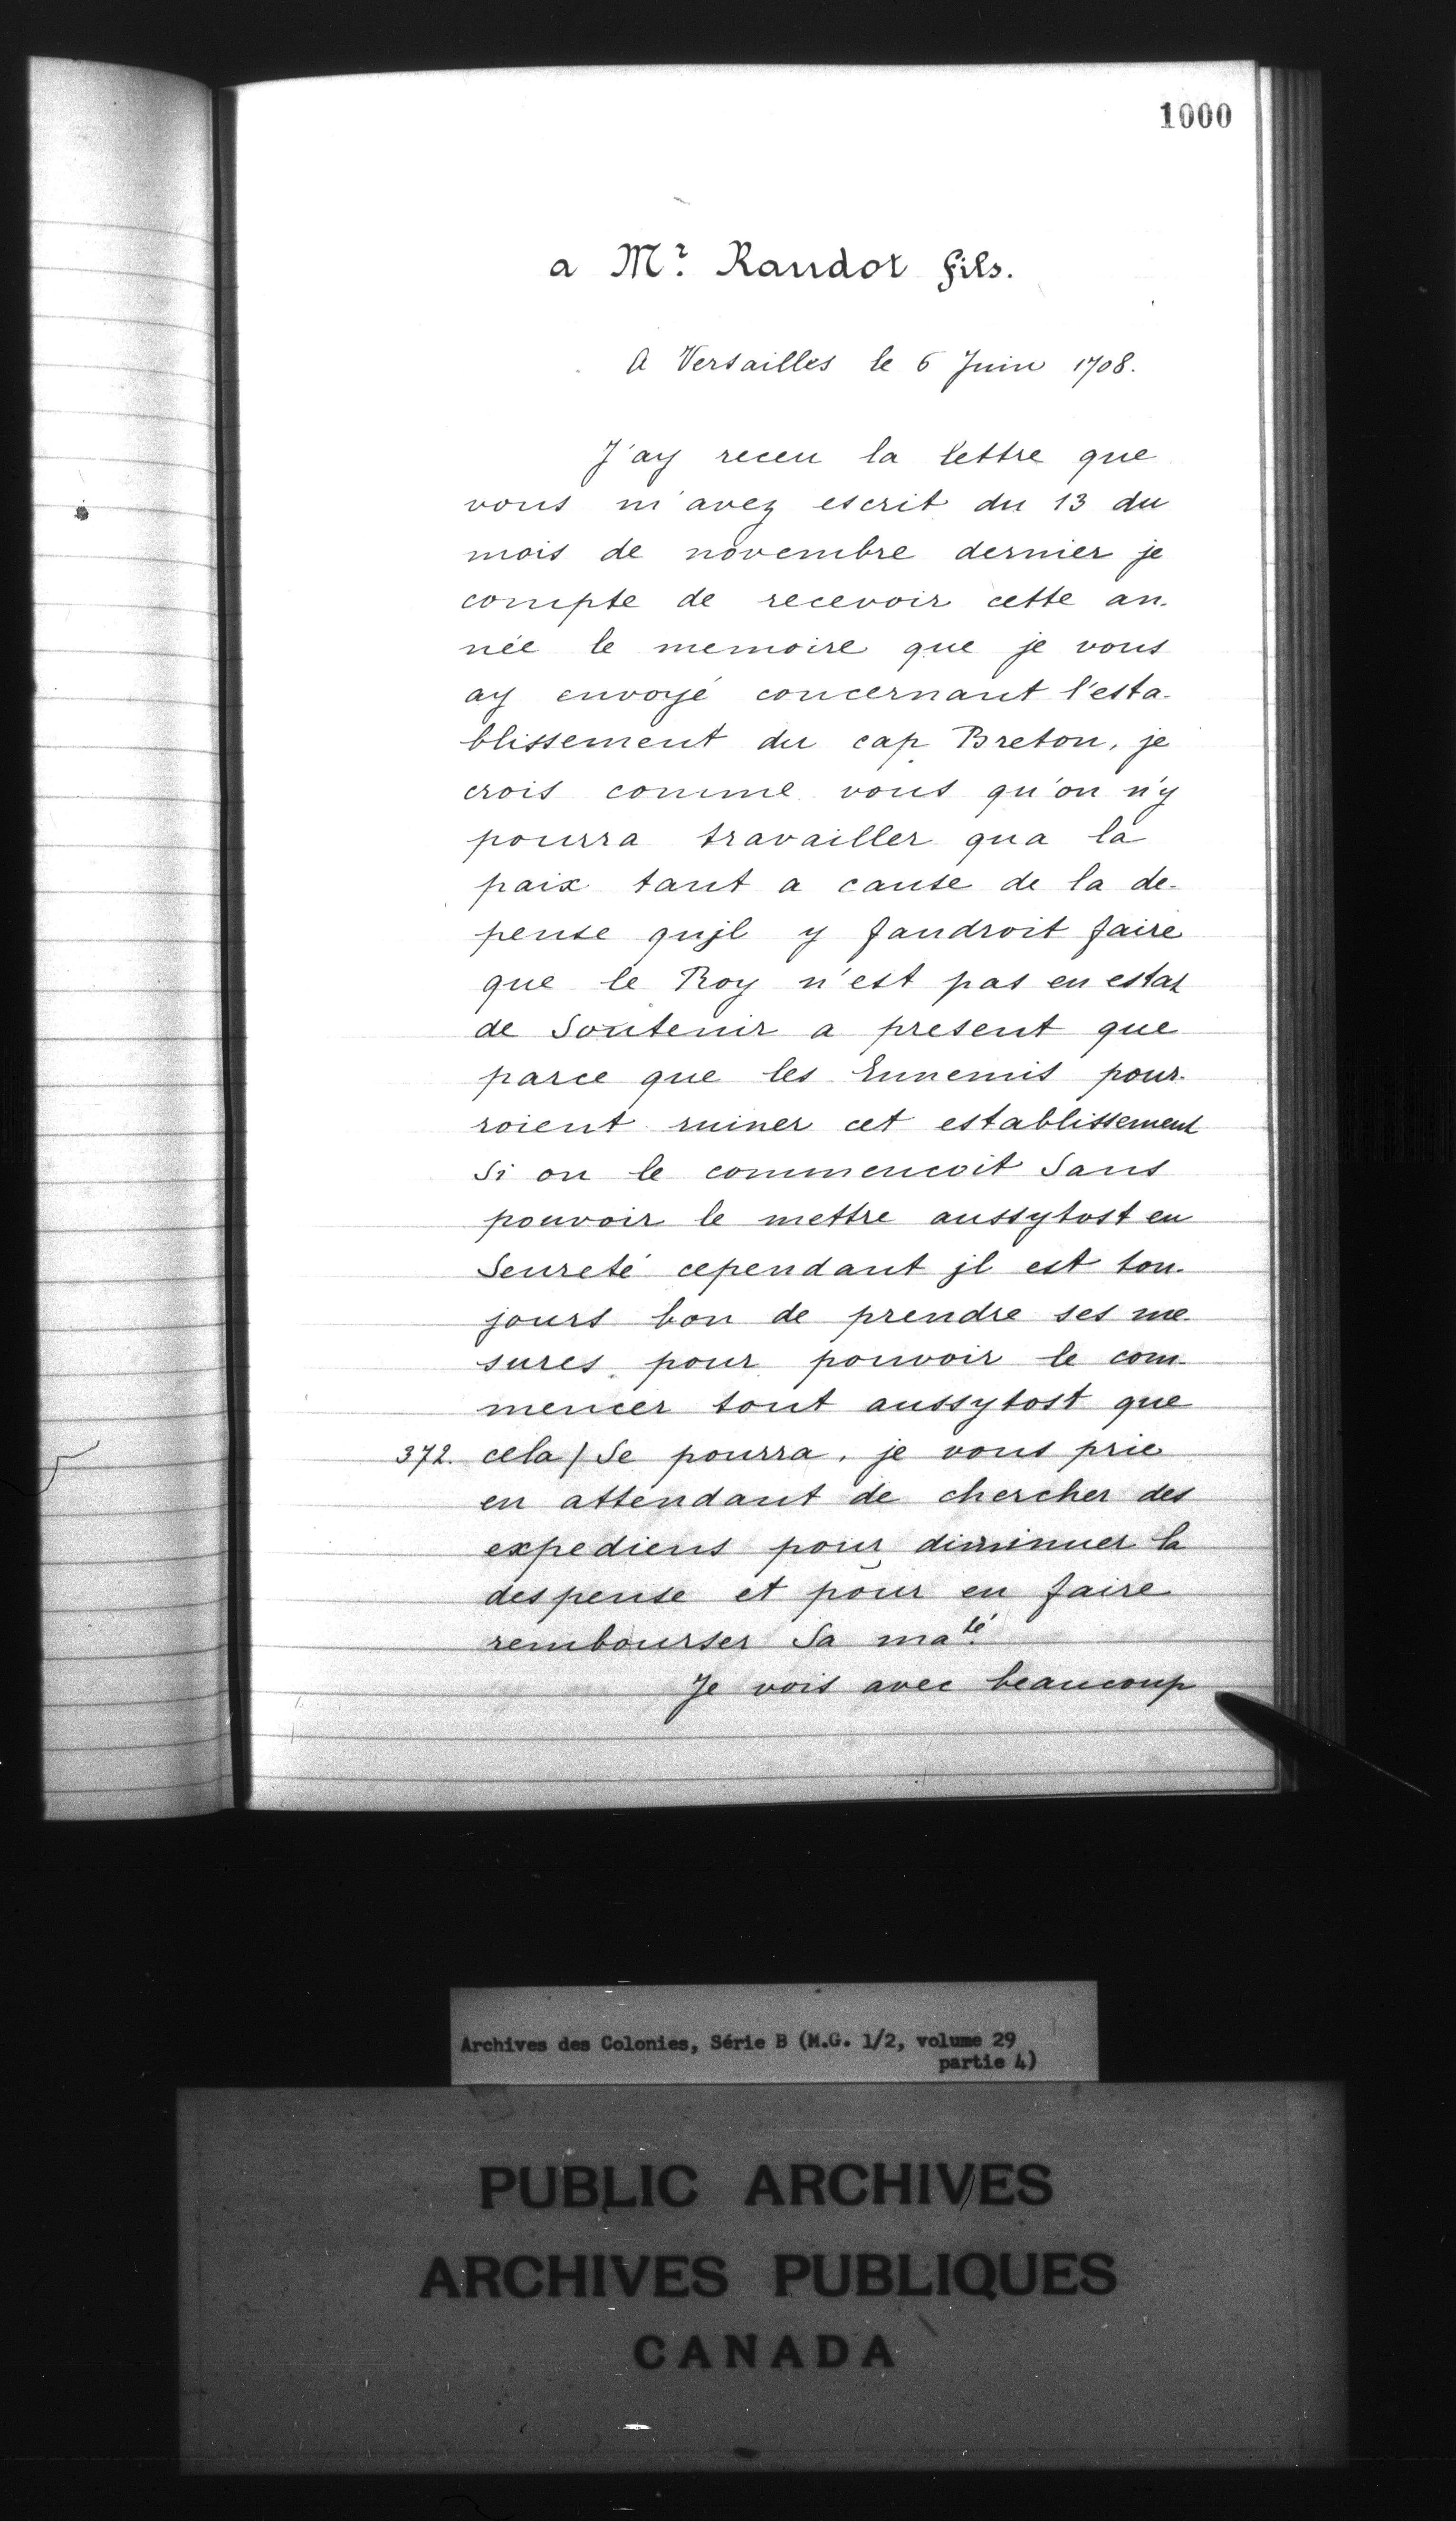 1000
a Mr. Raudot fils.
A Versailles le 6 Juin 1708.
J'ay receu la lettre que
vous m'avez escrit du 13 du
mois de novembre dernier je
compte de recevoir cette an-
née le memoire que je vous
ay envoyé concernant l'esta-
blissement du cap Breton, je
crois comme vous qu'on n'y
pourra travailler qua la
paix tant a cause de la de-
pense qujl y faudroit faire
que le Roy n'est pas en estat
de Soutenir a present que
parce que les Ennemis pour-
roient ruiner cet establissement
Si on le commencoit Sans
pouvoir le mettre aussytost en
Seureté cependant jl est tou-
jours bon de prendre ses me-
sures pour pouvoir le com-
mencer tout aussytost que
372. cela / Se pourra, je vous prie
en attendant de chercher des
expediens pour diminuer la
despense et pour en faire
rembourser Sa maté.
Je vois avec beaucoup
Archives des Colonies, Série B (M.G. 1/2, volume 29
partie 4)
PUBLIC ARCHIVES
ARCHIVES PUBLIQUES
CANADA